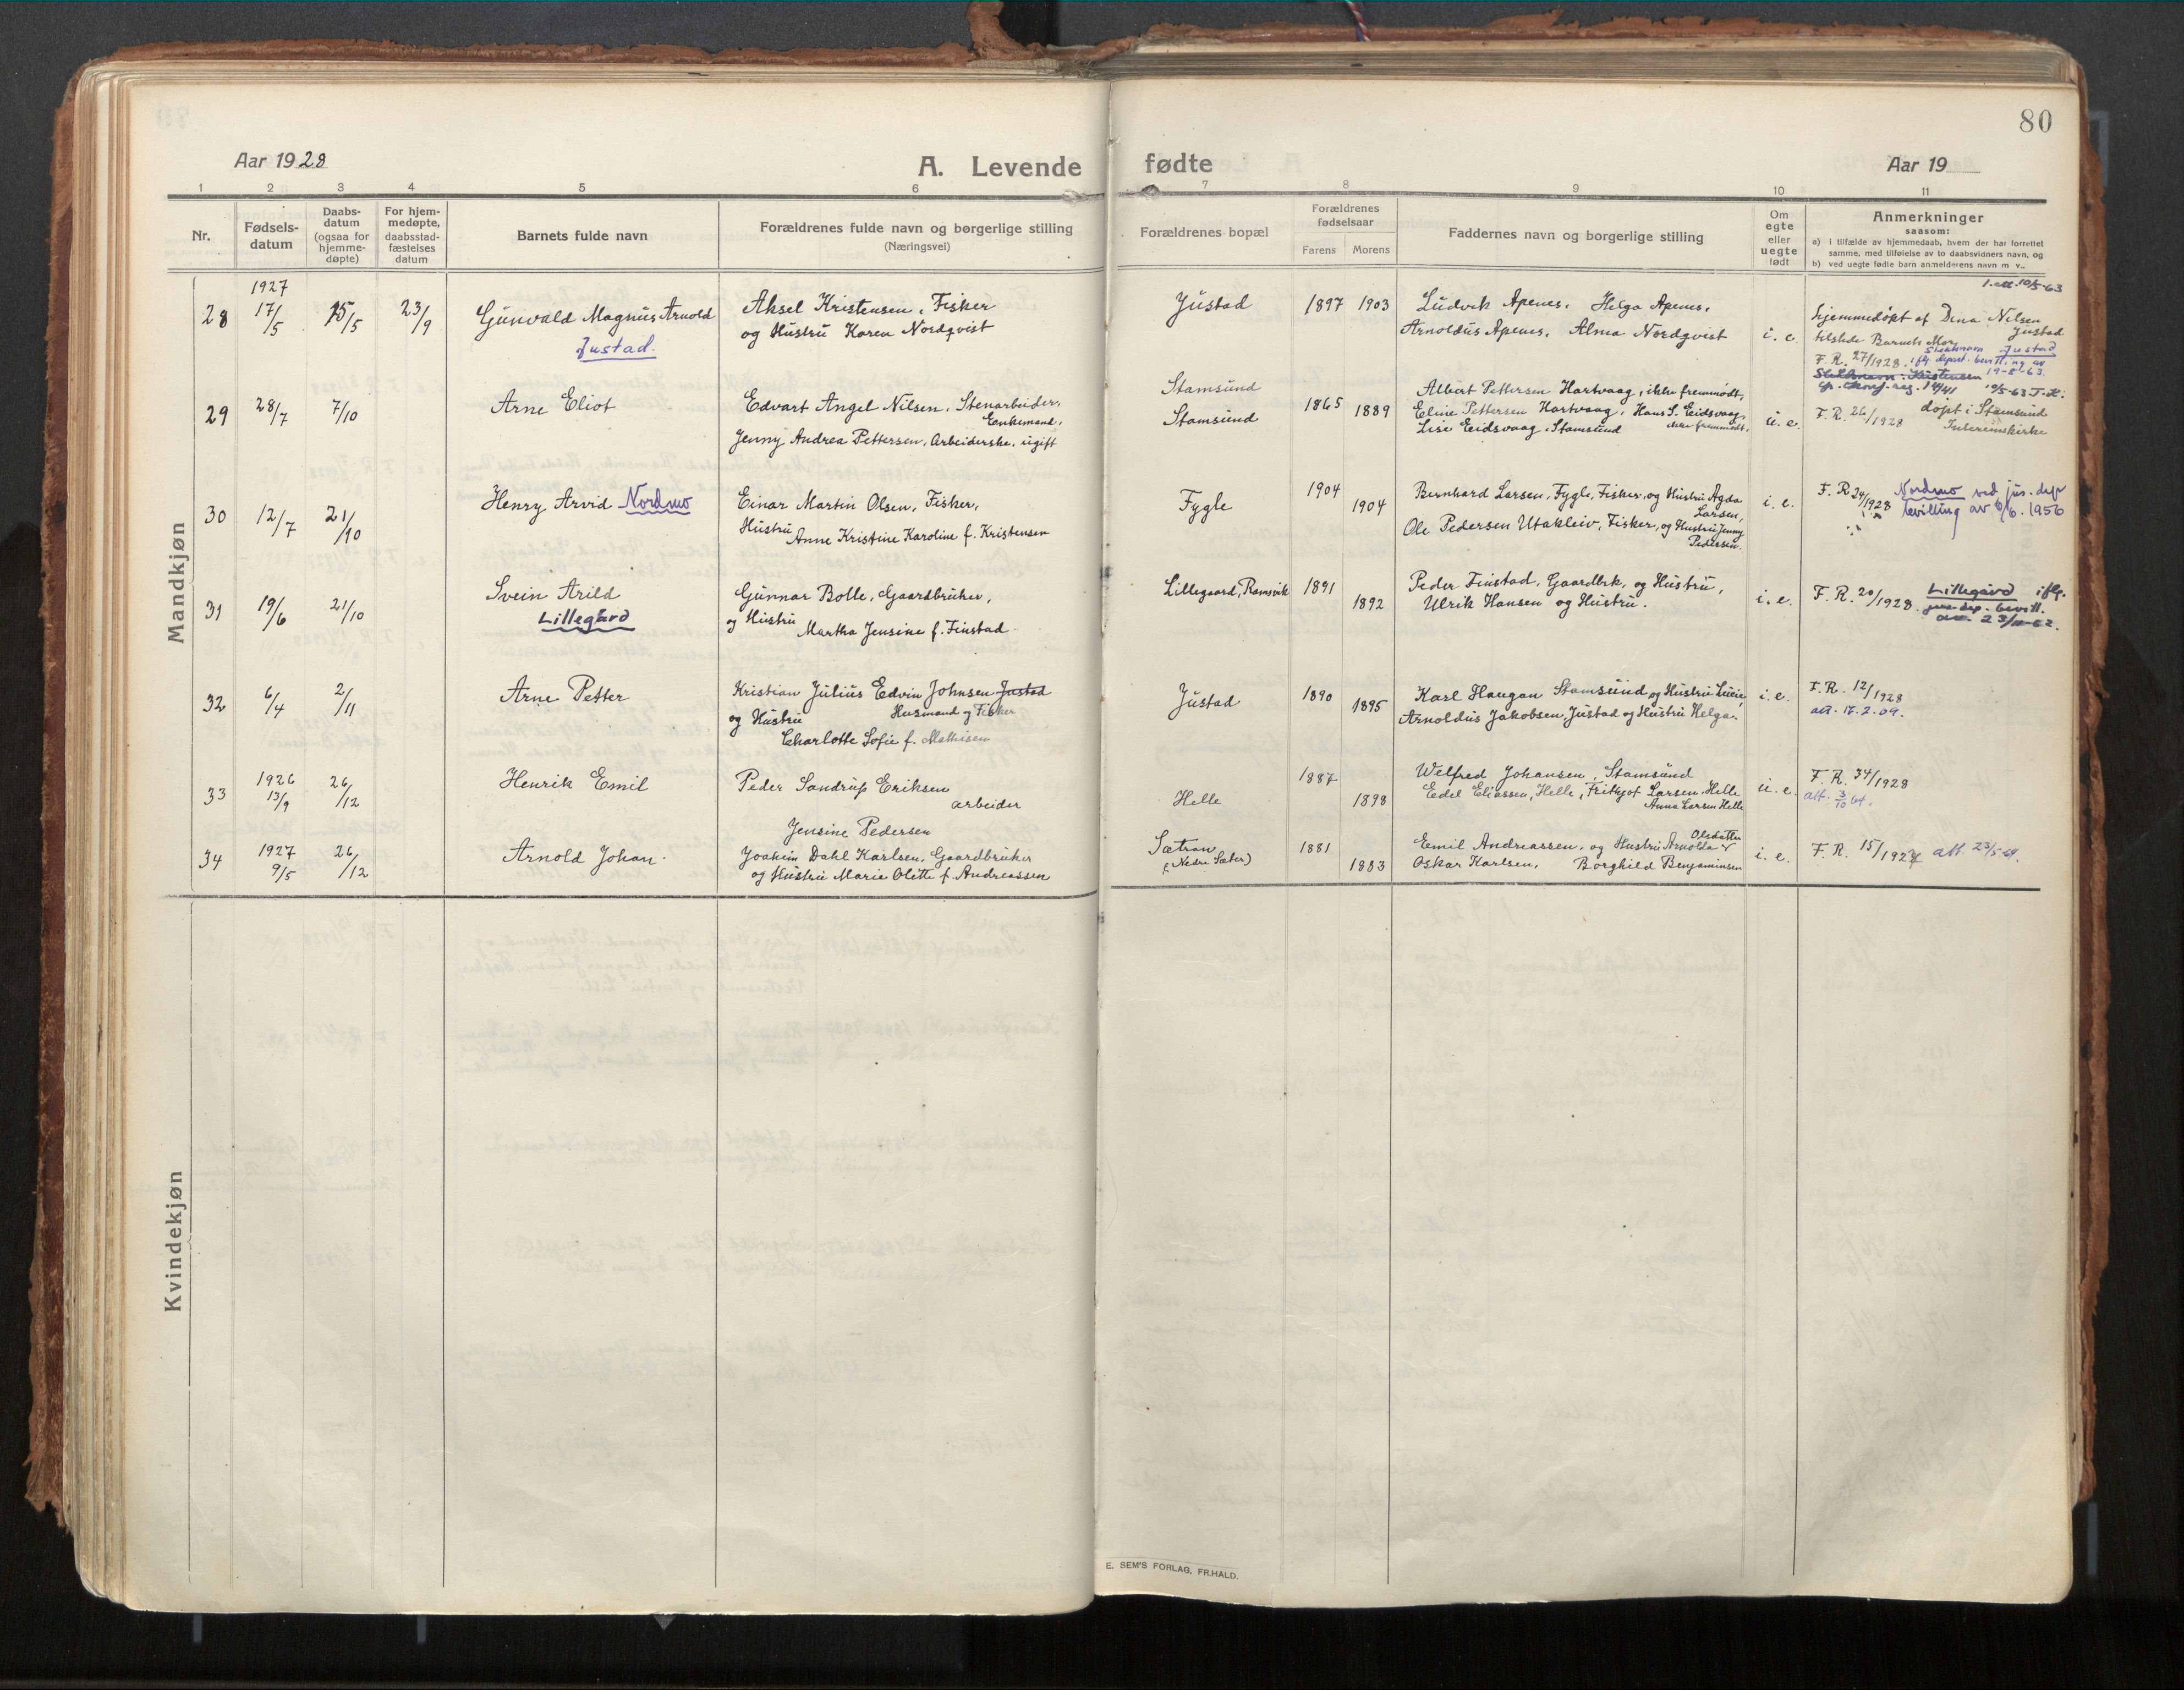 80
Aar 1928
A. Levende fødte
Aar 19
1 2 3 4 5 6 7 8 9 10 11
Nr.
Fødsels-
datum
Daabs-
datum
(ogsaa for
hjemme-
døpte)
For hjem-
medøpte,
daabsstad-
fæstelses
datum
Barnets fulde navn
Forældrenes fulde navn og borgerlige stilling
(Næringsvei)
Forældrenes bopæl
Forældrenes
fødselsaar
Farens Morens
Faddernes navn og borgerlige stilling
Om
egte
eller
uegte
født
Anmerkninger
saasom:
a) i tilfælde av hjemmedaab, hvem der har forrettet
samme, med tilføielse av to daabsvidners navn, og
b) ved uegte fødte barn anmelderens navn m v..
Mandkjøn
1927
28 17/5 15/5 23/9 Gunvald Magnus Arnold
Justad.
Aksel Kristensen, Fisker
og Hustru Karen Nordqvist
Justad 1897 1903
Ludvik Apenes, Helga Apenes,
Arnoldus Apenes, Alma Nordqvist
i. e.
1. att. 10/5-63
Hjemmedøpt af Dina Nilsen
Justad
tilstede Barnets Mor
Slektsnavn Justad
F. R. 27/1928. ifg depart. bevilling av
19-8-63.
Slektsnavn: Kristensen
10/5-63
29 28/7 7/10 Arne Eliot
Edvart Angel Nilsen, Stenarbeider,
Enkemand,
Jenny Andrea Pettersen, Arbeiderske, ugift
Stamsund
Stamsund
1865 1889
Albert Pettersen Hartvaag, ikke fremmødt,
Eline Pettersen Hartvaag, Hans S. Eidsvaag,
ikke fremmødt,
Lise Eidsvaag, Stamsund
u. e.
F. R. 26/1928
døpt i Stamsund
Interimskirke
30 12/7 21/10 Henry Arvid Nordmo
Einar Martin Olsen, Fisker,
Hustru
Anne Kristine Karoline f. Kristensen
Fygle 1904 1904
Bernhard Larsen, Fygle, Fisker, og Hustru Agda
Larsen,
Ole Pedersen Utakleiv, Fisker, og Hustru Jenny
Pedersen.
i. e.
F. R 24/1928 Nordmo ved jus. dep
bevilling av 6/6. 1956
31 19/6 21/10 Svein Arild
Lillegård
Gunnar Bolle, Gaardbruker,
og Hustru
Martha Jensine f. Finstad
Lillegaard, Ramsvik 1891 1892
Peder Finstad, Gaardbrk, og Hustru,
Ulrik Hansen og Hustru.
i. e.
F. R. 20/1928. Lillegård iflg.
jus. dep. bevill.
av. 23/11-62.
32 6/4 2/11 Arne Petter
Kristian Julius Edvin Johnsen Justad
Husmand og Fisker
og Hustru
Charlotte Sofie f. Mathisen
Justad 1890 1895
Karl Haugan Stamsund og Hustru Lucie,
Arnoldus Jakobsen, Justad og Hustru Helga.
i. e.
F. R. 12/1928
att. 17. 2. 09.
1926
33 13/9 26/12 Henrik Emil
Peder Sandrup Eriksen
arbeider
Jensine Pedersen
Helle 1887 1898
Welfred Johansen, Stamsund
Edel Eliassen, Helle, Fritkjof Larsen Helle
Anna Larsen Helle
u. e.
F. R. 34/1928
att. 3/10 64.
1927
34 9/5 26/12 Arnold Johan.
Joakim Dahl Karlsen, Gaardbruker
og Hustru Marie Olette f. Andreassen
Sætran
(Nedre Sæter)
1881 1883
Olsdatter
Emil Andreassen, og Hustru Arnolda
Oskar Karlsen, Borghild Benjaminsen
i. e.
F. R. 15/1927 att. 23/5-69.
Kvindekjøn
E. SEM'S FORLAG, FR.HALD.